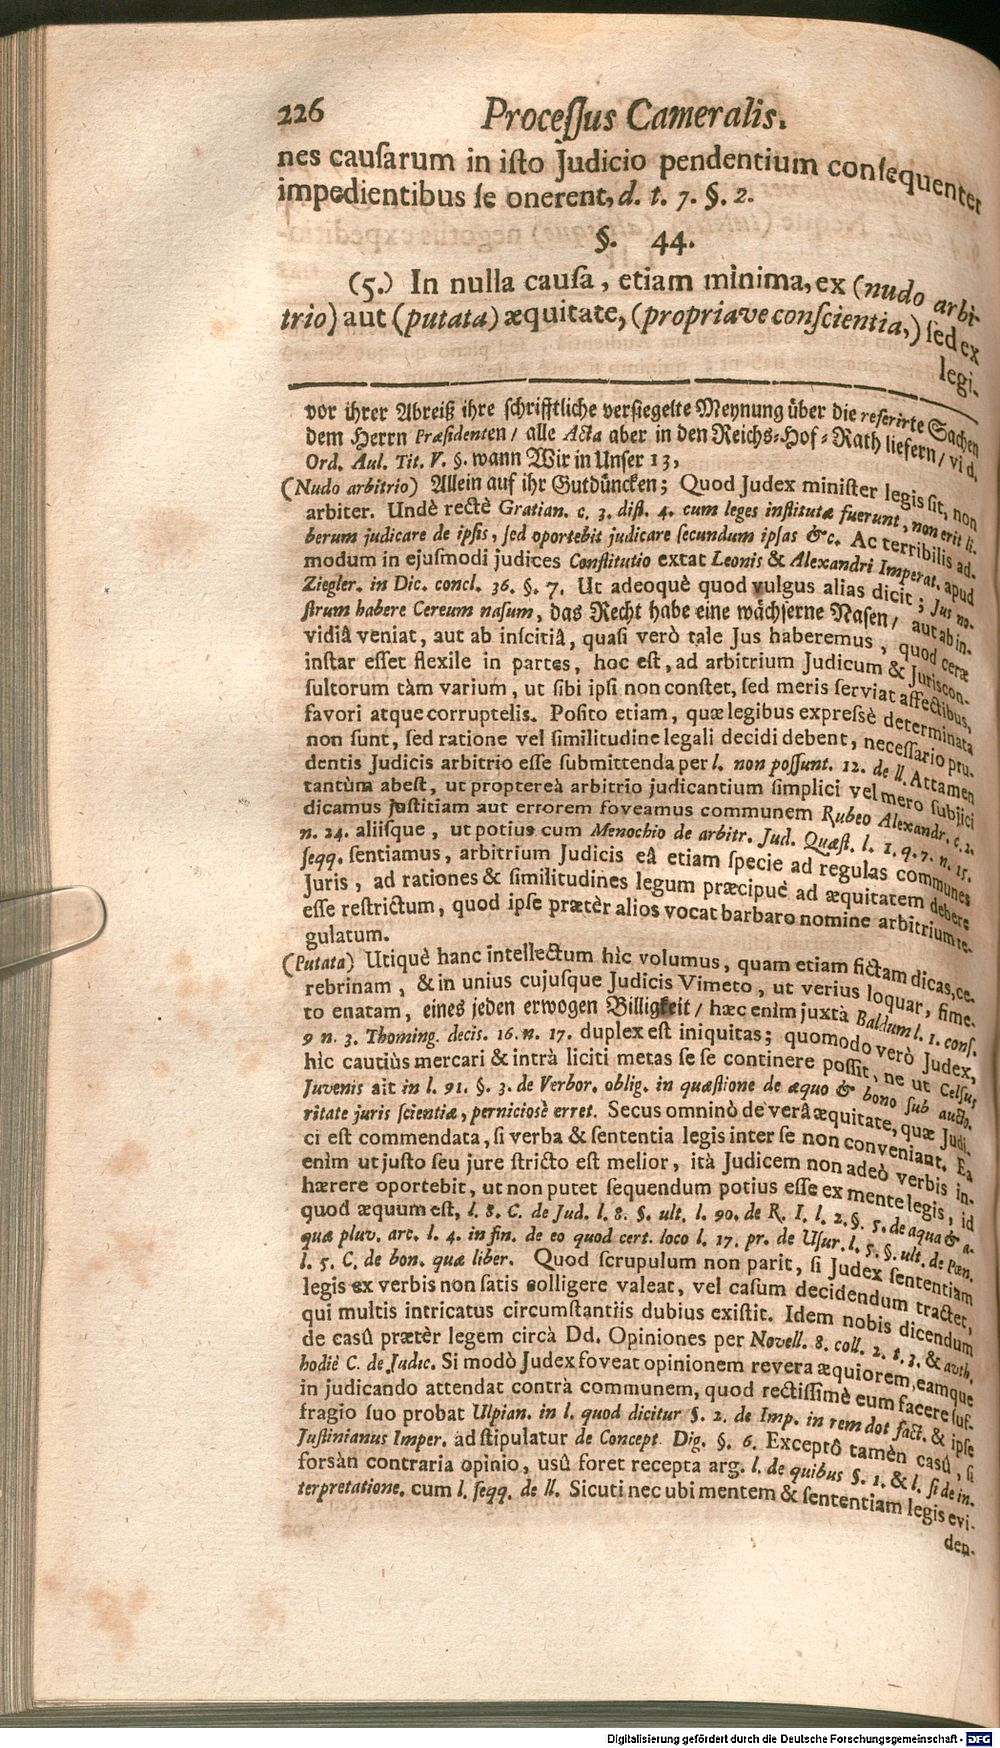 226 Proceſſus Cameralis.
nes cauſarum in iſto Judicio pendentium conſequenter
impedientibus ſe onerent, d. t. 7. §. 2.
§. 44.
(5.) In nulla cauſa, etiam minima, ex (nudo arbi-
trio) aut (putata) æquitate, (propriave conſcientia,) ſed ex
legi.
vor ihrer Abreiß ihre ſchrifftliche verſiegelte Meynung über die referirte Sachen
dem Herrn Præſidenten / alle Acta aber in den Reichs-Hof-Rath liefern / vid.
Ord. Aul. Tit. V. §. wann Wir in Unſer 13,
(Nudo arbitrio) Allein auf ihr Gutdüncken; Quod Judex miniſter legis ſit, non
arbiter. Undè rectè Gratian. c. 3. diſt. 4. cum leges inſtitutæ fuerunt, non erit li-
berum judicare de ipſis, ſed oportebit judicare ſecundum ipſas &c. Ac terribilis ad-
modum in ejuſmodi judices Conſtitutio extat Leonis & Alexandri Imperat. apud
Ziegler. in Dic. concl. 36. §. 7. Ut adeoquè quod vulgus alias dicit; Jus no-
ſtrum habere Cereum naſum, das Recht habe eine wächſerne Naſen / aut ab in-
vidiâ veniat, aut ab inſcitiâ, quaſi verò tale Jus haberemus, quod ceræ
inſtar eſſet flexile in partes, hoc eſt, ad arbitrium Judicum & Juriscon-
ſultorum tàm varium, ut ſibi ipſi non conſtet, ſed meris ſerviat affectibus,
favori atque corruptelis. Poſito etiam, quæ legibus expreſsè determinata
non ſunt, ſed ratione vel ſimilitudine legali decidi debent, neceſſario pru-
dentis Judicis arbitrio eſſe ſubmittenda per l. non poſſunt. 12. de ll. Attamen
tantùm abeſt, ut proptereà arbitrio judicantium ſimplici vel mero ſubjici
dicamus juſtitiam aut errorem foveamus communem Rubeo Alexandr. c. 2.
n. 24. aliiſque, ut potius cum Menochio de arbitr. Jud. Quæſt. l. 1. q. 7. n. 15.
ſeqq. ſentiamus, arbitrium Judicis eâ etiam ſpecie ad regulas communes
Juris, ad rationes & ſimilitudines legum præcipuè ad æquitatem debere
eſſe reſtrictum, quod ipſe prætèr alios vocat barbaro nomine arbitrium re-
gulatum.
(Putata) Utiquè hanc intellectum hìc volumus, quam etiam fictam dicas, ce-
rebrinam, & in unius cujuſque Judicis Vimeto, ut verius loquar, fime-
to enatam, eines jeden erwogen Billigkeit / hæc enìm juxtà Baldum l. 1. conſ.
9 n. 3. Thoming. decis. 16. n. 17. duplex eſt iniquitas; quomodo verò Judex,
hìc cautiùs mercari & intrà liciti metas ſe ſe continere poſſit, ne ut Celſus
Juvenis ait in l. 91. §. 3. de Verbor. oblig. in quæſtione de æquo & bono ſub aucto-
ritate juris ſcientiæ, perniciosè erret. Secus omninò de verâ æquitate, quæ Judi-
ci eſt commendata, ſi verba & ſententia legis inter ſe non conveniant. Ea
enìm ut juſto ſeu jure ſtricto eſt melior, ità Judicem non adeò verbis in-
hærere oportebit, ut non putet ſequendum potius eſſe ex mente legis, id
quod æquum eſt, l. 8. C. de Jud. l. 8. §. ult. l. 90. de R. I. l. 2. §. 5. de aqua & a-
quæ pluv. arc. l. 4. in fin. de eo quod cert. loco l. 17. pr. de Uſur. l. 5. §. ult. de Pœn.
l. 5. C. de bon. quæ liber. Quod ſcrupulum non parit, ſi Judex ſententiam
legis ex verbis non ſatis colligere valeat, vel caſum decidendum tractet,
qui multis intricatus circumſtantiis dubius exiſtit. Idem nobis dicendum
de casû prætèr legem circà Dd. Opiniones per Novell. 8. coll. 2. t. 3. & auth.
hodiè C. de Judic. Si modò Judex foveat opinionem revera æquiorem, eamque
in judicando attendat contrà communem, quod rectiſſimè eum facere ſuf-
fragio ſuo probat Ulpian. in l. quod dicitur §. 2. de Imp. in rem dot fact. & ipſe
Juſtinianus Imper. adſtipulatur de Concept. Dig. §. 6. Exceptô tamèn casû, ſi
forsàn contraria opinio, usû foret recepta arg. l. de quibus §. 1. & l. ſi de in-
terpretatione. cum l. ſeqq. de ll. Sicuti nec ubi mentem & ſententiam legis evi-
den-
Digitalisierung gefördert durch die Deutsche Forschungsgemeinschaft - DFG